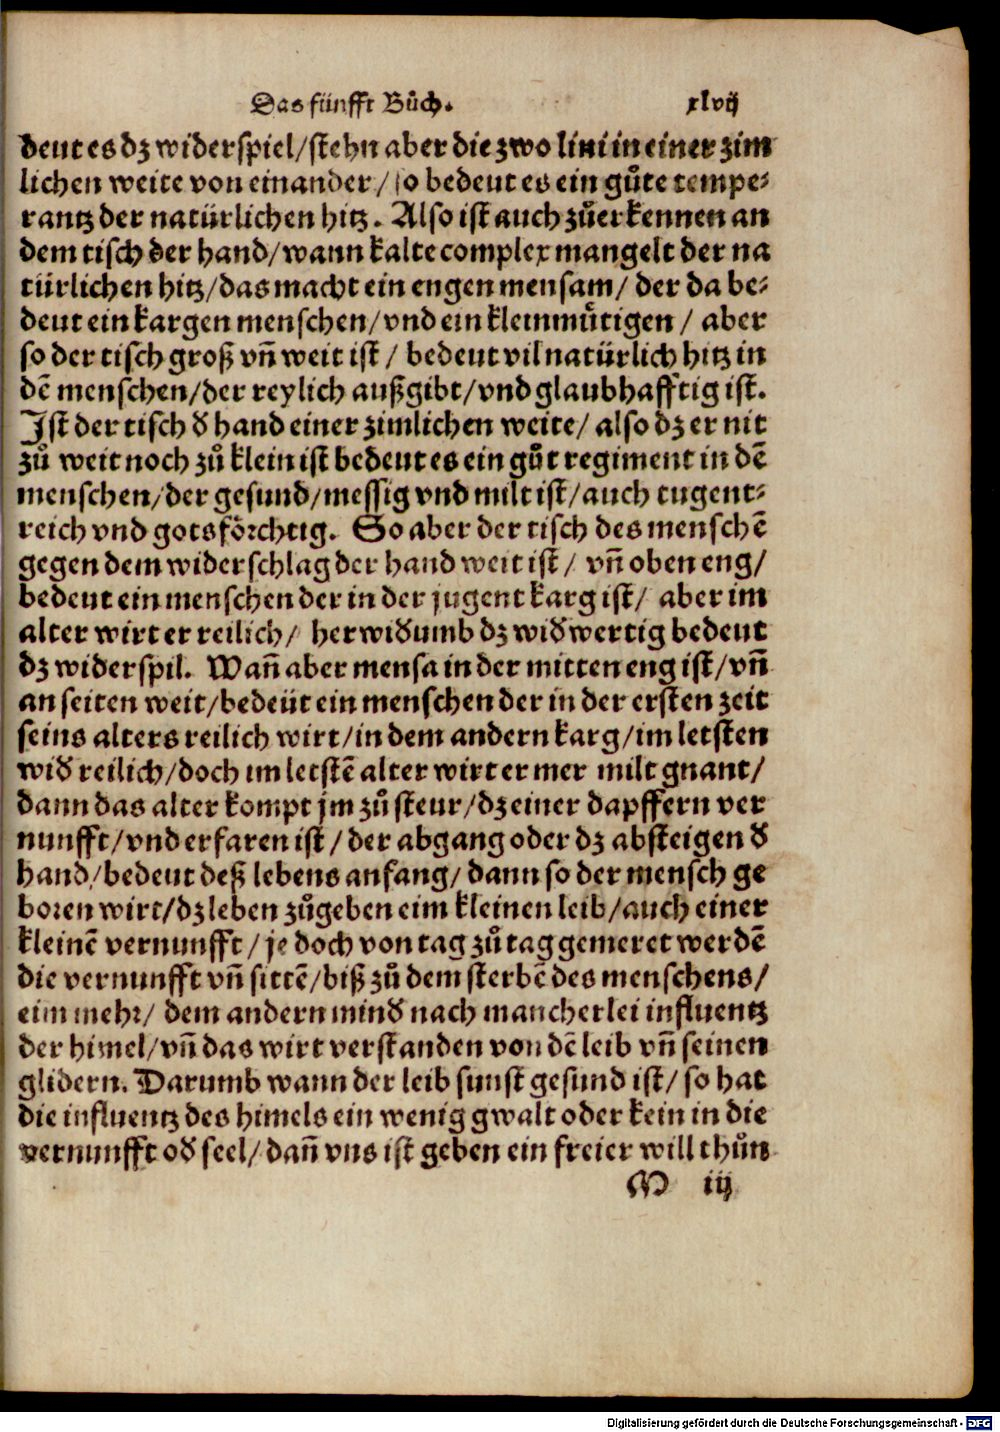 Das fünfft Bůch. xlvij
deut es dz widerspiel/stehn aber die zwo lini in einer zim
lichen weite von einander/so bedeut es ein gůte tempe⸗
rantz der natürlichen hitz. Also ist auch zůerkennen an
dem tisch der hand/wann kalte complex mangelt der na
türlichen hitz/das macht ein engen mensam/ der da be⸗
deut ein kargen menschen/vnd ein kleinmůtigen/ aber
so der tisch groß vñ weit ist/ bedeut vil natürlich hitz in
dē menschen/der reylich außgibt/vnd glaubhafftig ist.
Ist der tisch d̕ hand einer zimlichen weite/ also dz er nit
zů weit noch zů klein ist bedeut es ein gůt regiment in dē
menschen/der gesund/messig vnd milt ist/auch tugent⸗
reich vnd gotsförchtig. So aber der tisch des menschē
gegen dem widerschlag der hand weit ist/ vñ oben eng/
bedeut ein menschen der in der jugent karg ist/ aber im
alter wirt er reilich/ herwid̕umb dz wid̕wertig bedeut
dz widerspil. Wañ aber mensa in der mitten eng ist/vñ
an seiten weit/bedeüt ein menschen der in der ersten zeit
seins alters reilich wirt/in dem andern karg/im letsten
wid̕ reilich/doch im letstē alter wirt er mer milt gnant/
dann das alter kompt jm zů steur/dz einer dapffern ver
nunfft/vnd erfaren ist/ der abgang oder dz absteigen d̕
hand/bedeut deß lebens anfang/ dann so der mensch ge
boren wirt/dz leben zůgeben eim kleinen leib/auch einer
kleinē vernunfft/je doch von tag zů tag gemeret werdē
die vernunfft vñ sittē/biß zů dem sterbē des menschens/
eim mehr/ dem andern mind̕ nach mancherlei influentz
der himel/vñ das wirt verstanden von dē leib vñ seinen
glidern. Darumb wann der leib sunst gesund ist/ so hat
die influentz des himels ein wenig gwalt oder kein in die
vernunfft od̕ seel/ dañ vns ist geben ein freier will thůn
M iij
Digitalisierung gefördert durch die Deutsche Forschungsgemeinschaft - DFG